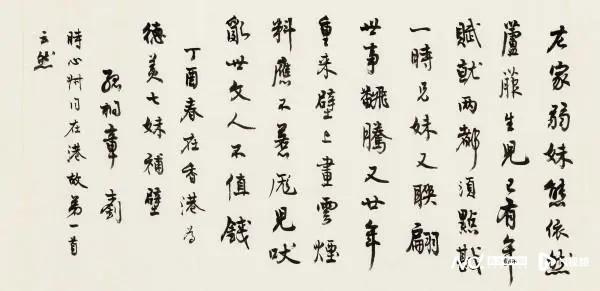 左家弱妹態依然
蘆菔生兒已有年
賦就兩都須點戡
一時兄妹又聯翩
世事飜騰又廿年
重來壁上畫雲煙
料應不惹厖兒吠
亂世文人不值錢
丁酉春在香港為
德美七妹補壁
孤桐章釗
時心同在港故第一首
云然